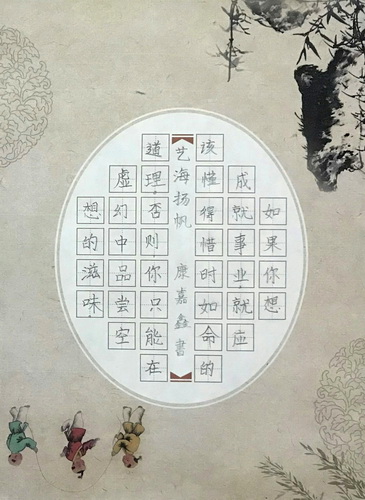 如果你想
成就事业就应
该懂得惜时如命的
艺海扬帆 康嘉鑫書
道理，否则，你只能在
虚幻中品尝空
想的滋味